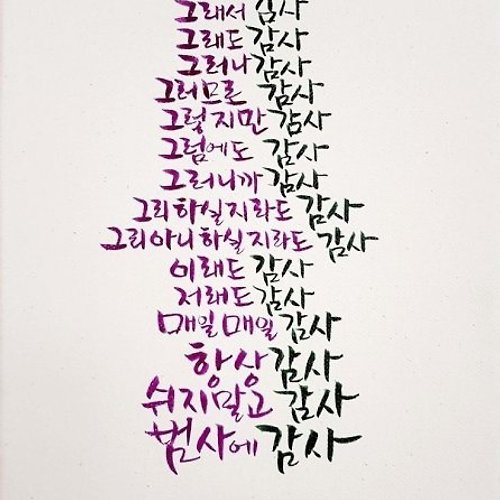 그래서 감사
그래도 감사
그러나 감사
그러므로 감사
그렇지만 감사
그럼에도 감사
그러니까 감사
그리하실지라도 감사
그리아니하실지라도 감사
이래도 감사
저래도 감사
매일매일 감사
항상 감사
쉬지말고 감사
범사에 감사